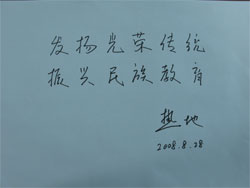 发扬光荣传统
振兴民族教育
热地
2008.8.28